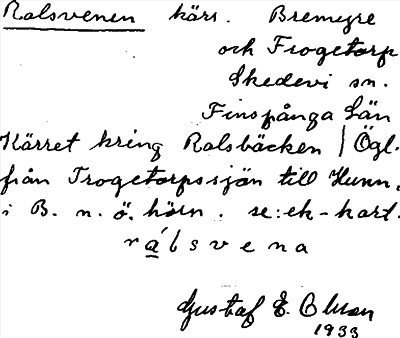 Ralsvenen kärr. Bremyre
och Trogetorp
Skedevi sn.
Finspånga Län
Kärret kring Ralsbäcken / Ögl.
från Trogetorpssjön till Hunn,
i B. n. ö. hörn. se: ek-kart.
rálsvena
Gustaf E. Olson
1933